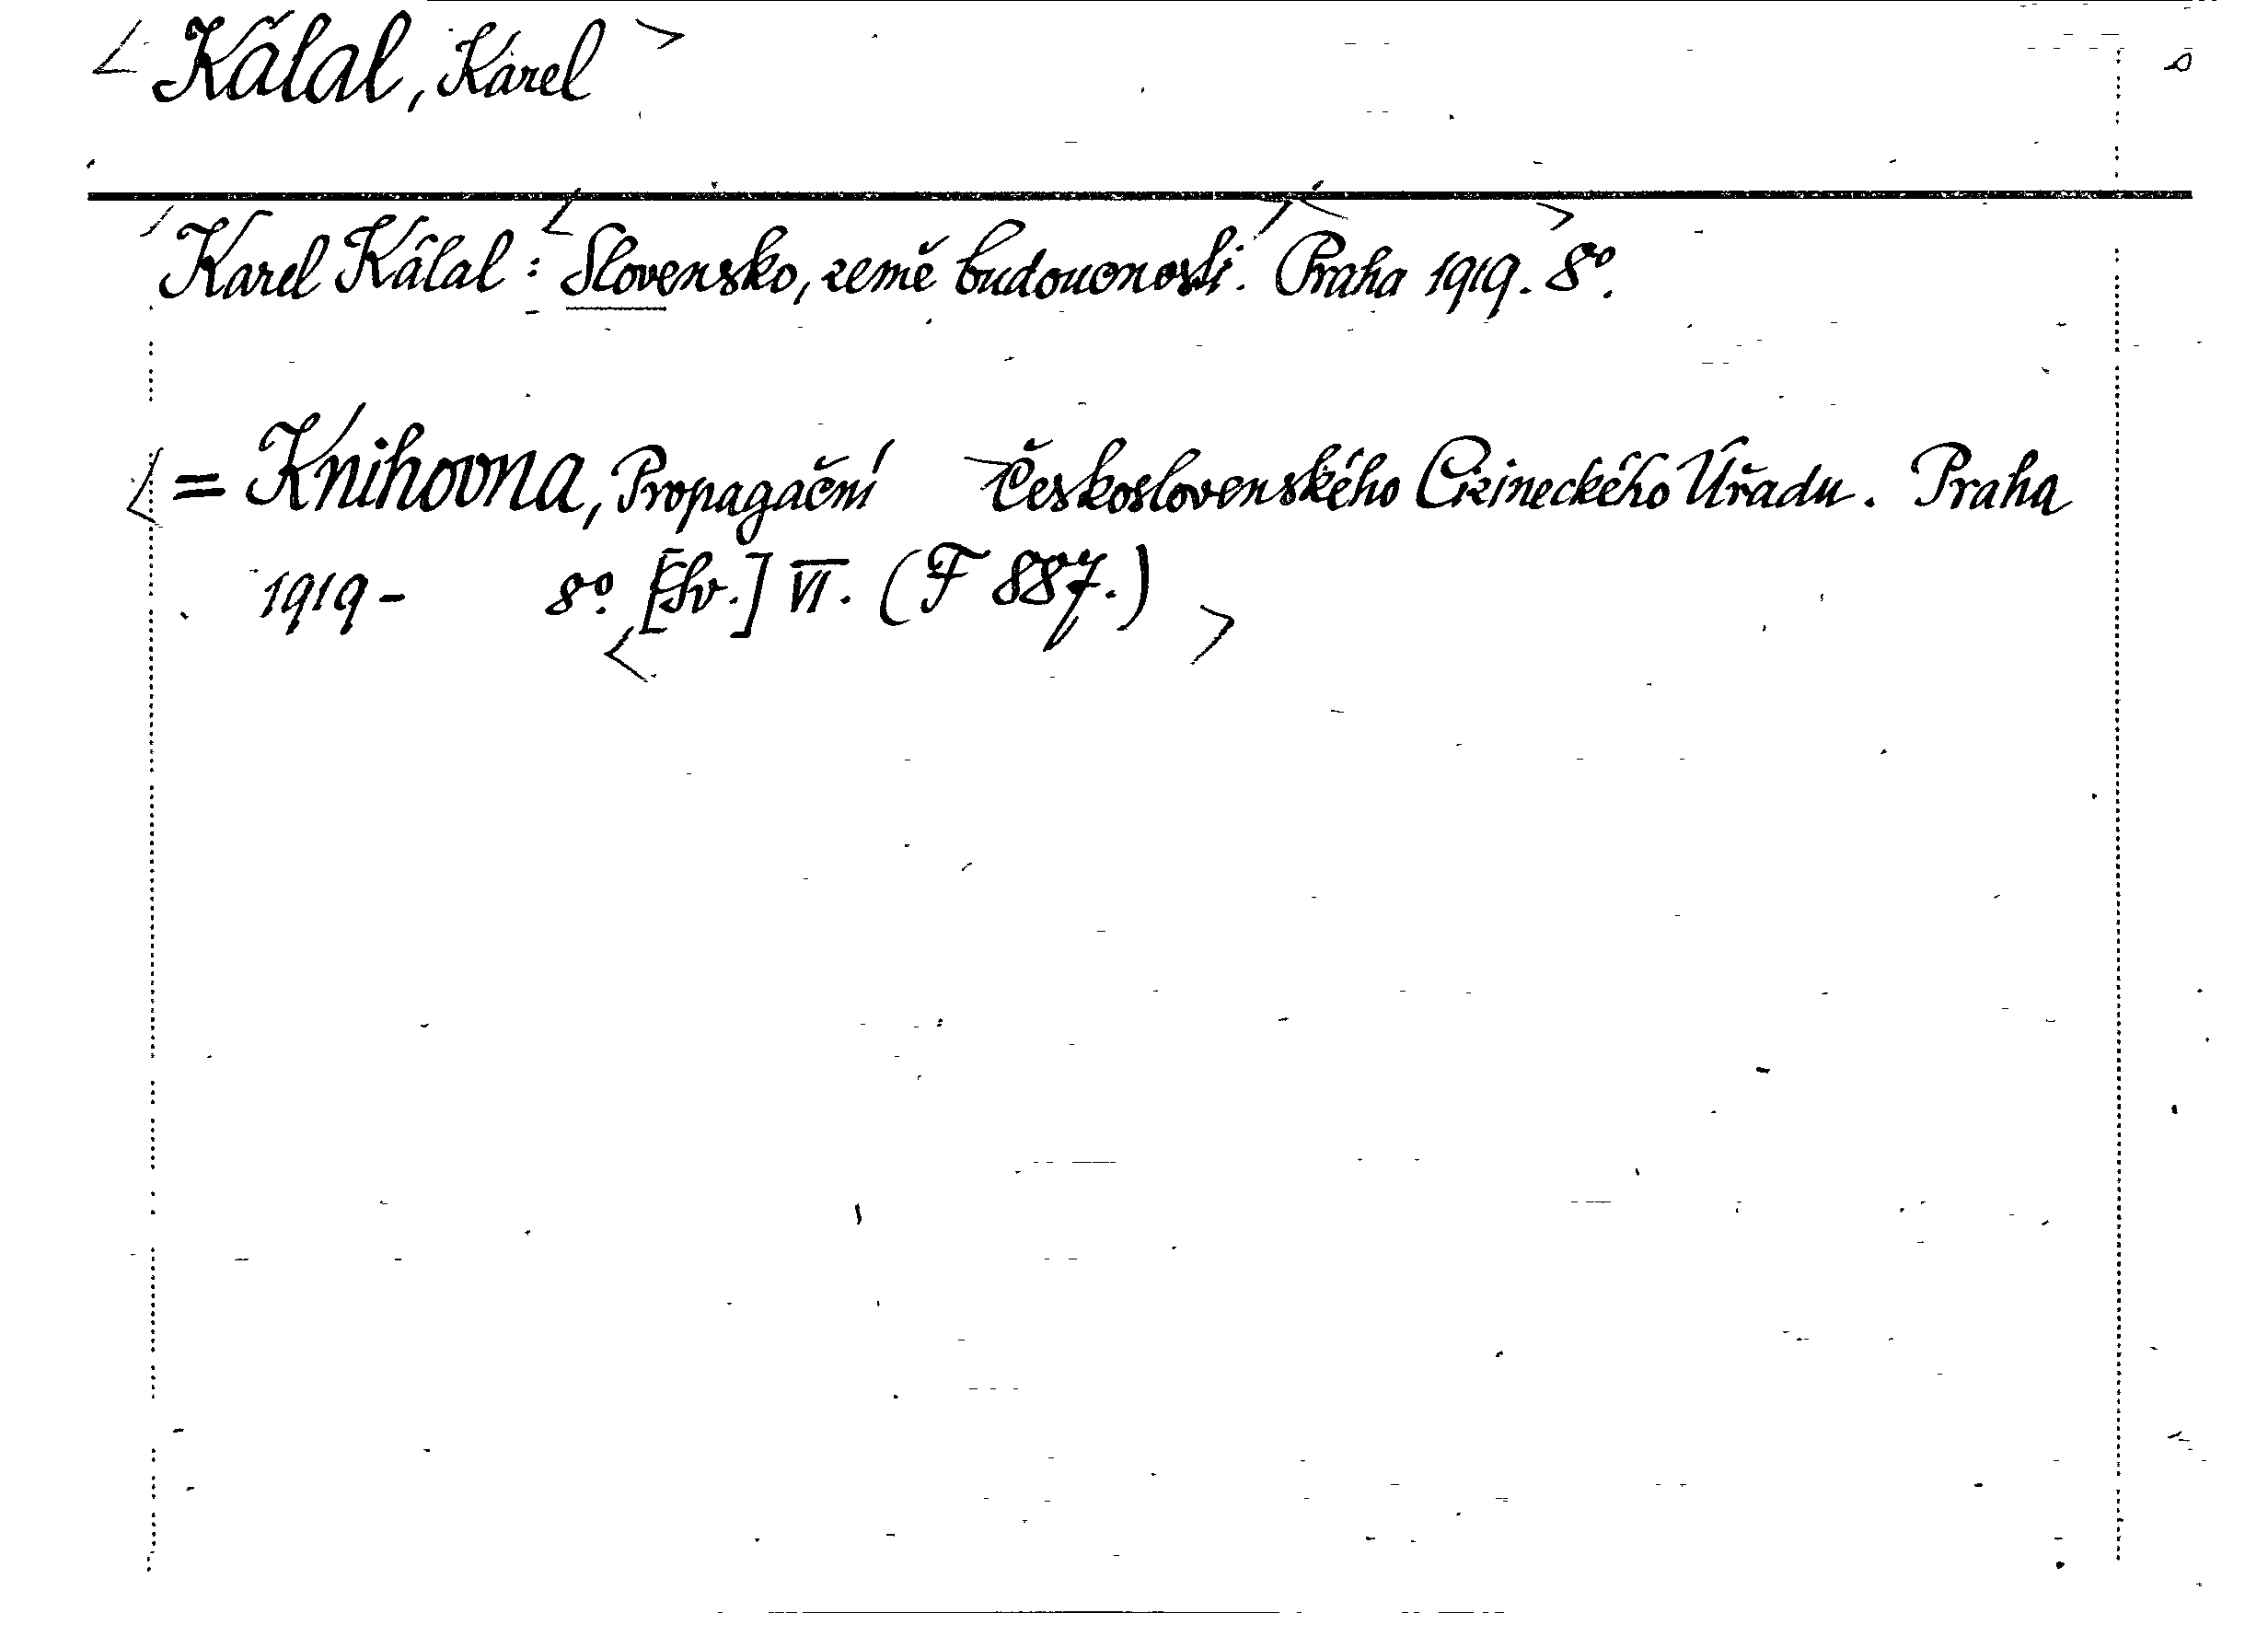 Kálal, Karel
Karel Kálal: Slovensko, země budoucnosti. Praha 1919. 8°.
= Knihovna, Propagační Československého Cizineckého Úřadu. Praha
1919- 8°. [Sv.] VI. (F 887.)